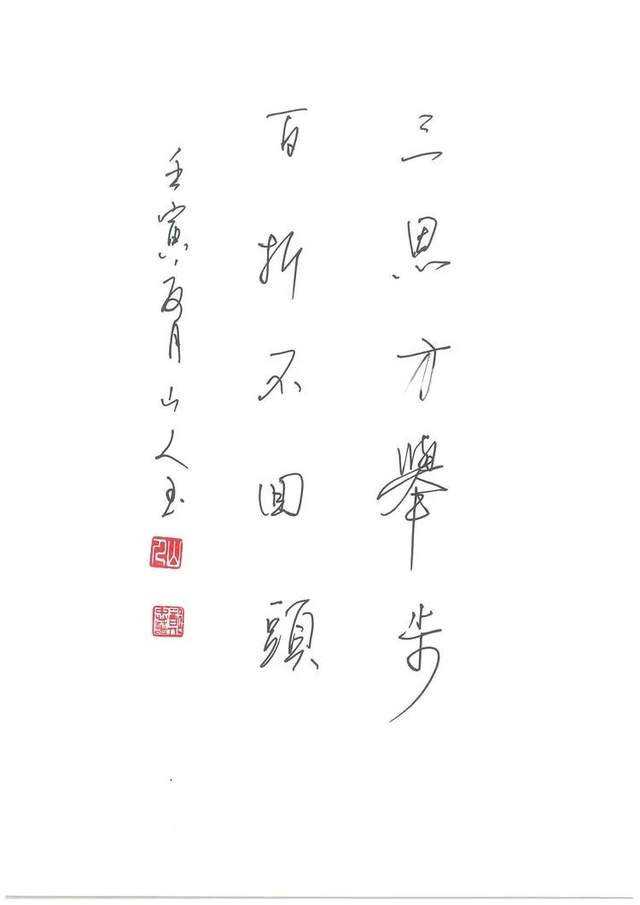 三思方舉步
百折不回頭
壬寅夏月山人玉
山人